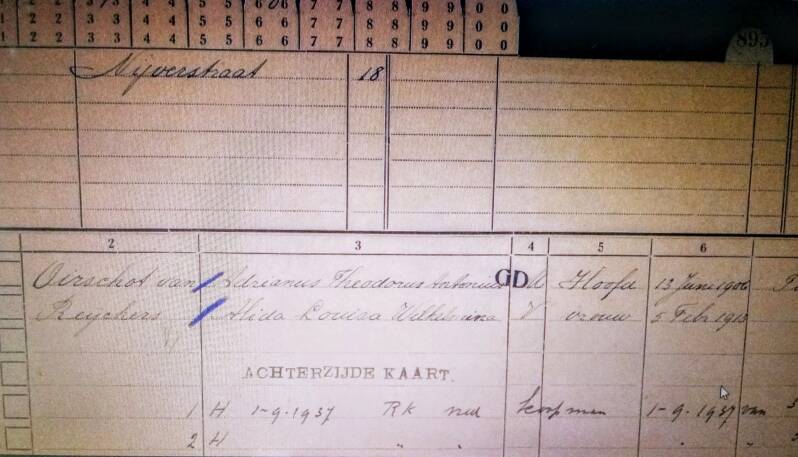 1 2 2 3 3 4 4 5 5 6 6 7 7 8 8 9 9 0 0
1 2 2 3 3 4 4 5 5 6 6 7 7 8 8 9 9 0 0
895
Nyverstraat 18
2 3 4 5 6
Oirschot van Adrianus Theodorus Antonius GD M Hoofd 13 Juni 1906
Reyckers Alida Louisa Wilhelmina V vrouw 5 Febr 1913
ACHTERZIJDE KAART.
1 H 1-9.1937 RK ned koopman 1-9.1937 van
2 H " " " "